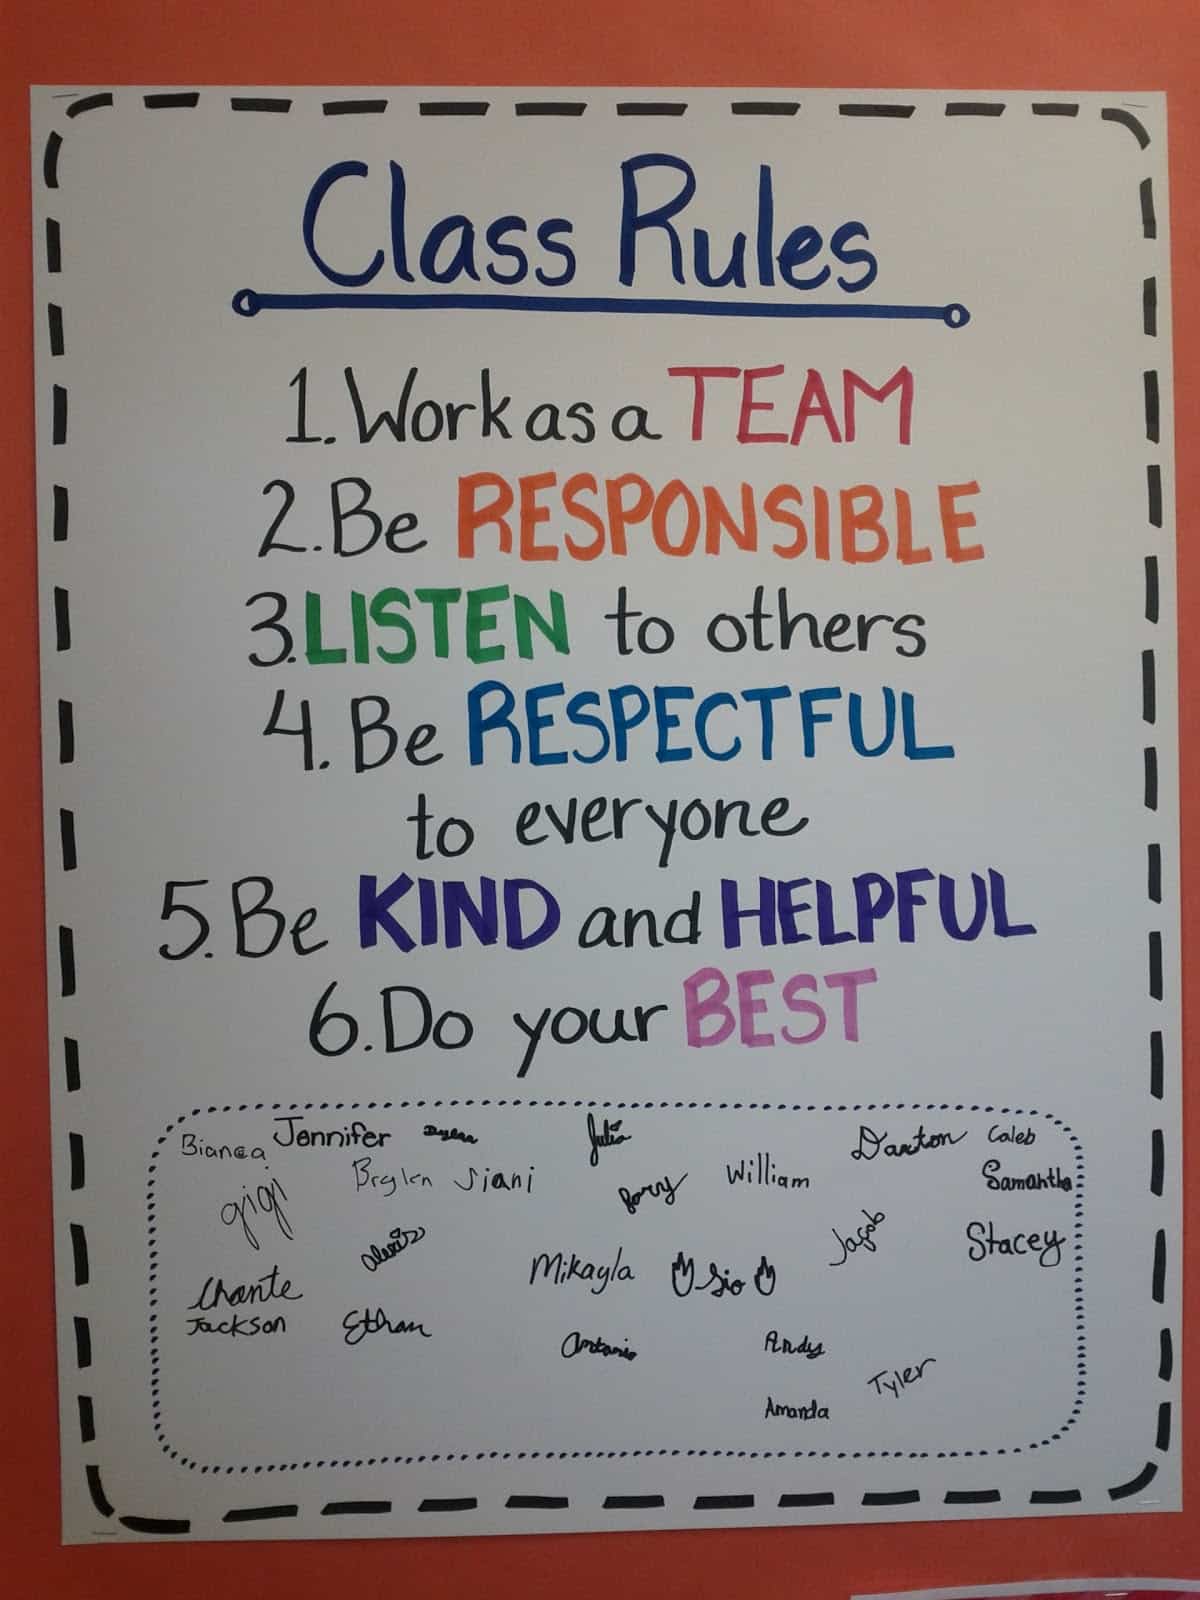 Class Rules
1. Work as a TEAM
2. Be RESPONSIBLE
3. LISTEN to others
4. Be RESPECTFUL
to everyone
5. Be KIND and HELPFUL
6. Do your BEST
Bianca Jennifer Julia Daxton Caleb
gigi Brylen Siani William Samantha
Alexis Mikayla Sio Jacob Stacey
Chante
Jackson Ethan Antonio Andy
Tyler
Amanda